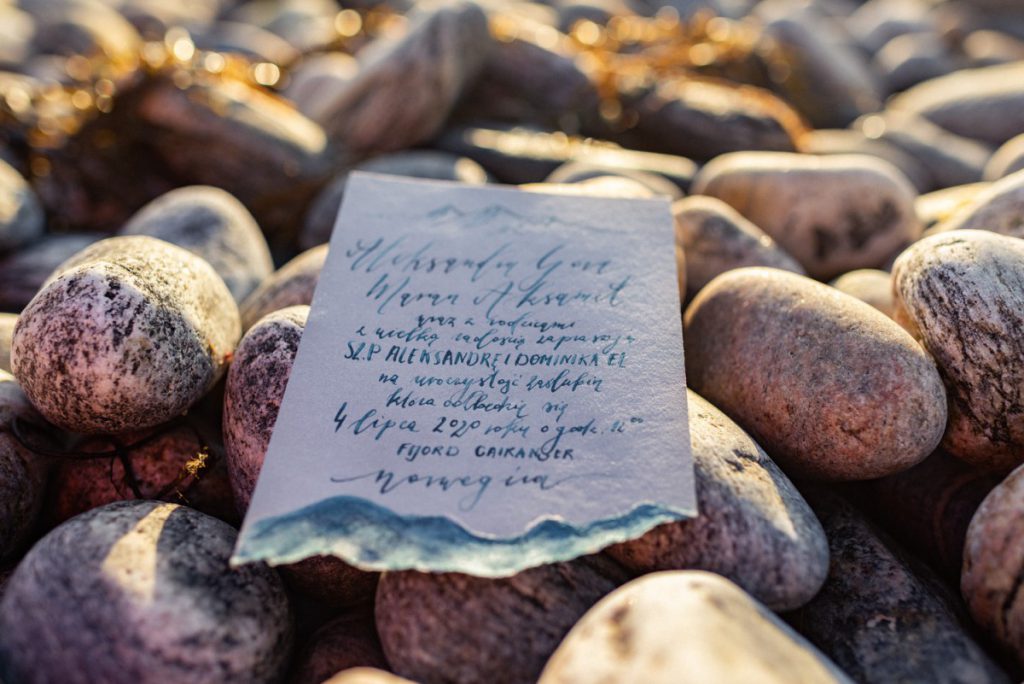 Aleksandra Gora
Maran Aksamit
wraz z rodzicami
z wielką radością zapraszają
SZ.P ALEKSANDRĘ I DOMINIKA EL
na uroczystość zaślubin
która odbędzie się
4 lipca 2020 roku o godz. 12 00
FIJORD GAIRANGER
norwegia